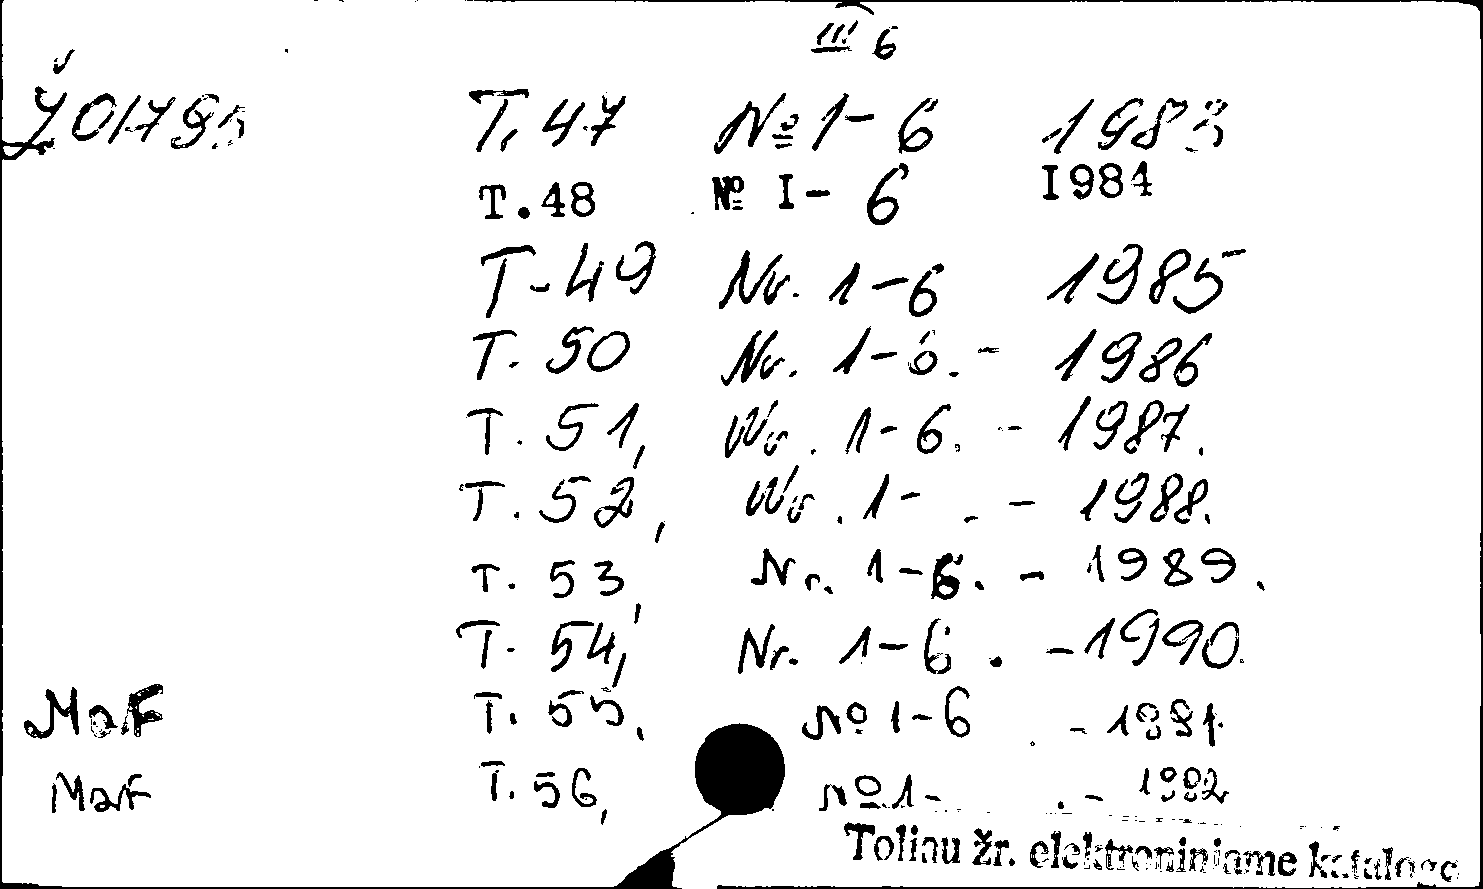 III 6
Ž01795 T. 47 № 1-6 1983
T.48 № I- 6 I984
T-49 Nr. 1-6 1985
T. 50 Nr. 1-6. - 1986
T. 51, Nr. 1-6. - 1987.
T. 52, Nr. 1- . - 1988.
T. 53, Nr. 1-6. - 1989.
T. 54, Nr. 1-6. - 1990.
MaF T. 55, № 1-6 - 1991.
MaF T. 56, № 1- . - 1992
Toliau žr. elektroniniame kataloge